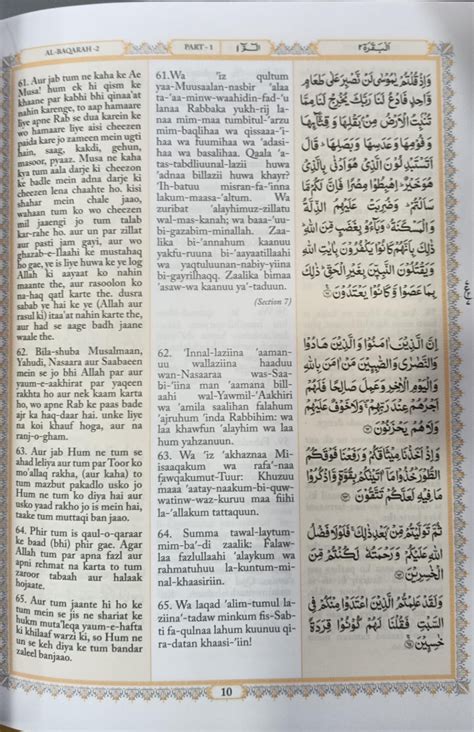 AL-BAQARAH -2
PART - 1
الٓمّٓ ١
الْبَقَرَة ٢
61. Aur jab tum ne kaha ke Ae
Musa! hum ek hi qism ke
khaane par kabhi bhi qinaa'at
nahin karenge, to aap hamaare
liye apne Rab se dua karein ke
wo hamaare liye aisi cheezen
paida kare jo zameen mein ugti
hain, saag, kakdi, gehun,
masoor, pyaaz. Musa ne kaha
kya tum aala darje ki cheezon
ke badle mein adna darje ki
cheezen lena chaahte ho. kisi
shahar mein chale jaao,
wahaan tum ko wo cheezen
mil jaaengi jo tum talab
kar-rahe ho. aur un par zillat
aur pasti jam gayi, aur wo
ghazab-e-Ilaahi ke mustahaq
ho gae, ye is liye huwa ke ye log
Allah ki aayaat ko nahin
maante the, aur rasoolon ko
na-haq qatl karte the. dusra
sabab ye hai ke ye (Allah aur
rasul ki) itaa'at nahin karte the,
aur had se aage badh jaane
waale the.
62. Bila-shuba Musalmaan,
Yahudi, Nasaara aur Saabaeen
mein se jo bhi Allah par aur
yaum-e-aakhirat par yaqeen
rakhta ho aur nek kaam karta
ho, wo apne Rab ke paas bade
ajr ka haq-daar hai. unke liye
na koi khauf hoga, aur na
ranj-o-gham.
63. Aur jab Hum ne tum se
ahad leliya aur tum par Toor ko
mo'allaq rakha, (aur kaha) to
tum mazbut pakadlo usko jo
Hum ne tum ko diya hai aur
usko yaad rakho jo is mein hai,
taake tum muttaqi ban jaao.
64. Phir tum is qaul-o-qaraar
ke baad (bhi) phir gae. Agar
Allah tum par apna fazl aur
apni rehmat na karta to tum
zaroor tabaah aur halaak
hojaate.
65. Aur tum jaante hi ho ke
tum mein se jis ne shariat ke
hukm muta'leqa yaum-e-hafta
ki khilaaf warzi ki, so Hum ne
un se keh diya ke tum bandar
zaleel banjaao.
61.Wa 'iz qultum
yaa-Muusaalan-nasbir 'alaa
ta-'aa-minw-waahidin-fad-'u
lanaa Rabbaka yukh-rij la-
naa mim-maa tumbitul-'arzu
mim-baqlihaa wa qissaaa-'i-
haa wa fuumihaa wa 'adasi-
haa wa basalihaa. Qaala 'a-
tas-tabdiluunal-lazii huwa
'adnaa billazii huwa khayr?
'Ih-batuu misran-fa-'inna
lakum-maasa-'altum. Wa
zuribat 'alayhimuz-zillatu
wal-mas-kanah; wa baaa-'uu-
bi-gazabim-minallah. Zaa-
lika bi-'annahum kaanuu
yakfu-ruuna bi-'aayaatillaahi
wa yaqtuluunan-nabiy-yiina
bi-gayrilhaqq. Zaalika bimaa
'asaw-wa kaanuu ya'-taduun.
(Section 7)
62. 'Innal-laziina 'aaman-
uu wallaziina haaduu
wan-Nasaaraa was-Saa-
bi-'iina man 'aamana bill-
aahi wal-Yawmil-'Aakhiri
wa 'amila saalihan falahum
'ajruhum 'inda Rabbihim: wa
laa khawfun 'alayhim wa laa
hum yahzanuun.
63. Wa 'iz 'akhaznaa Mi-
isaaqakum wa rafa'-naa
fawqakumut-Tuur: Khuzuu
maaa 'aatay-naakum-bi-quw-
watinw-waz-kuruu maa fiihi
la-'allakum tattaquun.
64. Summa tawal-laytum-
mim-ba'-di zaalik: Falaw-
laa fazlullaahi 'alaykum wa
rahmatuhuu la-kuntum-mi-
nal-khaasiriin.
65. Wa laqad 'alim-tumul la-
ziina'-tadaw minkum fis-Sab-
ti fa-qulnaa lahum kuunuu qi-
ra-datan khaasi-'iin!
وَاِذْ قُلْتُمْ يٰمُوْسٰى لَنْ نَّصْبِرَ عَلٰى طَعَامٍ
وَّاحِدٍ فَادْعُ لَنَا رَبَّكَ يُخْرِجْ لَنَا مِمَّا
تُنْۢبِتُ الْاَرْضُ مِنْۢ بَقْلِهَا وَ قِثَّآىِٕهَا
وَ فُوْمِهَا وَ عَدَسِهَا وَ بَصَلِهَا ؕ قَالَ
اَتَسْتَبْدِلُوْنَ الَّذِيْ هُوَ اَدْنٰى بِالَّذِيْ
هُوَ خَيْرٌ ؕ اِهْبِطُوْا مِصْرًا فَاِنَّ لَكُمْ مَّا
سَاَلْتُمْ ؕ وَ ضُرِبَتْ عَلَيْهِمُ الذِّلَّةُ
وَ الْمَسْكَنَةُ ۗ وَ بَآءُوْ بِغَضَبٍ مِّنَ اللّٰهِ ؕ
ذٰلِكَ بِاَنَّهُمْ كَانُوْا يَكْفُرُوْنَ بِاٰيٰتِ اللّٰهِ
وَ يَقْتُلُوْنَ النَّبِيّٖنَ بِغَيْرِ الْحَقِّ ؕ ذٰلِكَ
بِمَا عَصَوْا وَّ كَانُوْا يَعْتَدُوْنَ
اِنَّ الَّذِيْنَ اٰمَنُوْا وَ الَّذِيْنَ هَادُوْا
وَ النَّصٰرٰى وَ الصّٰبِـِٕيْنَ مَنْ اٰمَنَ بِاللّٰهِ
وَ الْيَوْمِ الْاٰخِرِ وَ عَمِلَ صَالِحًا فَلَهُمْ
اَجْرُهُمْ عِنْدَ رَبِّهِمْ ۚ وَ لَا خَوْفٌ عَلَيْهِمْ
وَ لَا هُمْ يَحْزَنُوْنَ
وَ اِذْ اَخَذْنَا مِيْثَاقَكُمْ وَ رَفَعْنَا فَوْقَكُمُ
الطُّوْرَ ؕ خُذُوْا مَاۤ اٰتَيْنٰكُمْ بِقُوَّةٍ وَّ اذْكُرُوْا
مَا فِيْهِ لَعَلَّكُمْ تَتَّقُوْنَ
ثُمَّ تَوَلَّيْتُمْ مِّنْۢ بَعْدِ ذٰلِكَ ۚ فَلَوْ لَا فَضْلُ
اللّٰهِ عَلَيْكُمْ وَ رَحْمَتُهٗ لَكُنْتُمْ مِّنَ
الْخٰسِرِيْنَ
وَ لَقَدْ عَلِمْتُمُ الَّذِيْنَ اعْتَدَوْا مِنْكُمْ فِي
السَّبْتِ فَقُلْنَا لَهُمْ كُوْنُوْا قِرَدَةً
خٰسِـِٕيْنَ
10